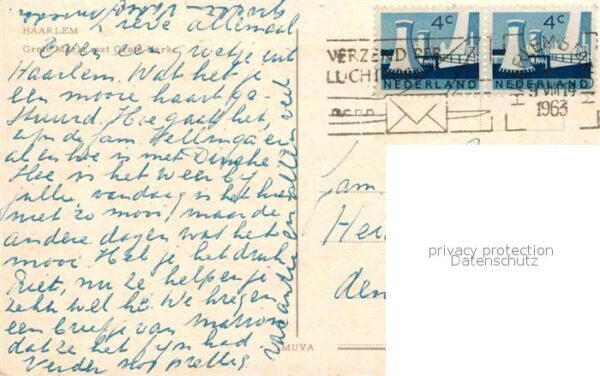 HAARLEM
Grote Markt met Grote Kerk
Lieve allemaal
Even een groetje uit
Haarlem. Wat heb je
een mooie kaart ge-
stuurd. Hoe gaat het
op de fam. Hellinga en
al en hoe is met
Hoe is het weer bij
jullie, vandaag is het hier
niet zo mooi, maar de
andere dagen wat het
mooi. Heb je het druk
Riet, nu ze helpen je
zeker wel hè. We kregen
een briefje van Marion
dat ze het fijn had.
Verder nog prettige
vacantie en allen veel
MUVA
4c
NEDERLAND
4c
NEDERLAND
VERZEND PER
LUCHT
HAARLEM
1963
Fam.
Her
den
privacy protection
Datenschutz